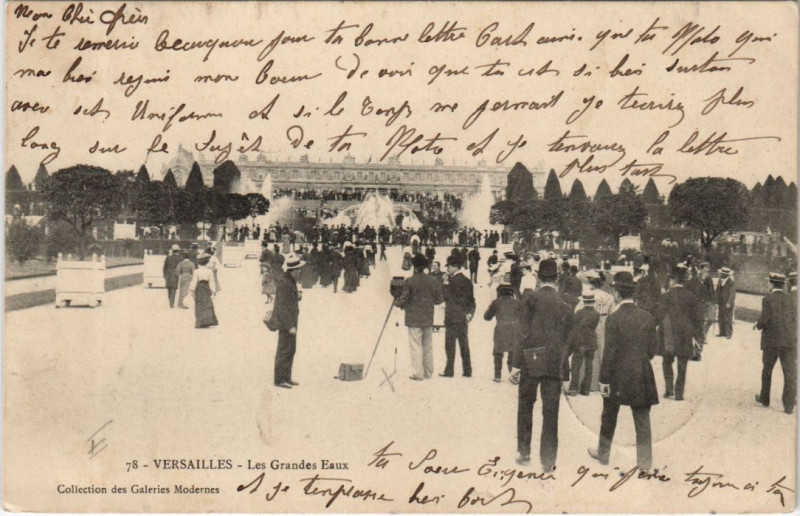 Mon Chèr frèri
Je te remersi beaucauou pour ta bonne lettre Cart ausi. que ta Moto qui
ma bié rejuis mon Coeur De voir que tu est si bié surtou
avec set Uniforme et si le temps me permait je tecrirez plus
long sur le Sujêt De ta Moto et je tenvairez la lettre
plus tart
78 - VERSAILLES - Les Grandes Eaux
Collection des Galeries Modernes
ta Soeu Eugenie qui pense toujour a ta
et je tenprasse bié fort